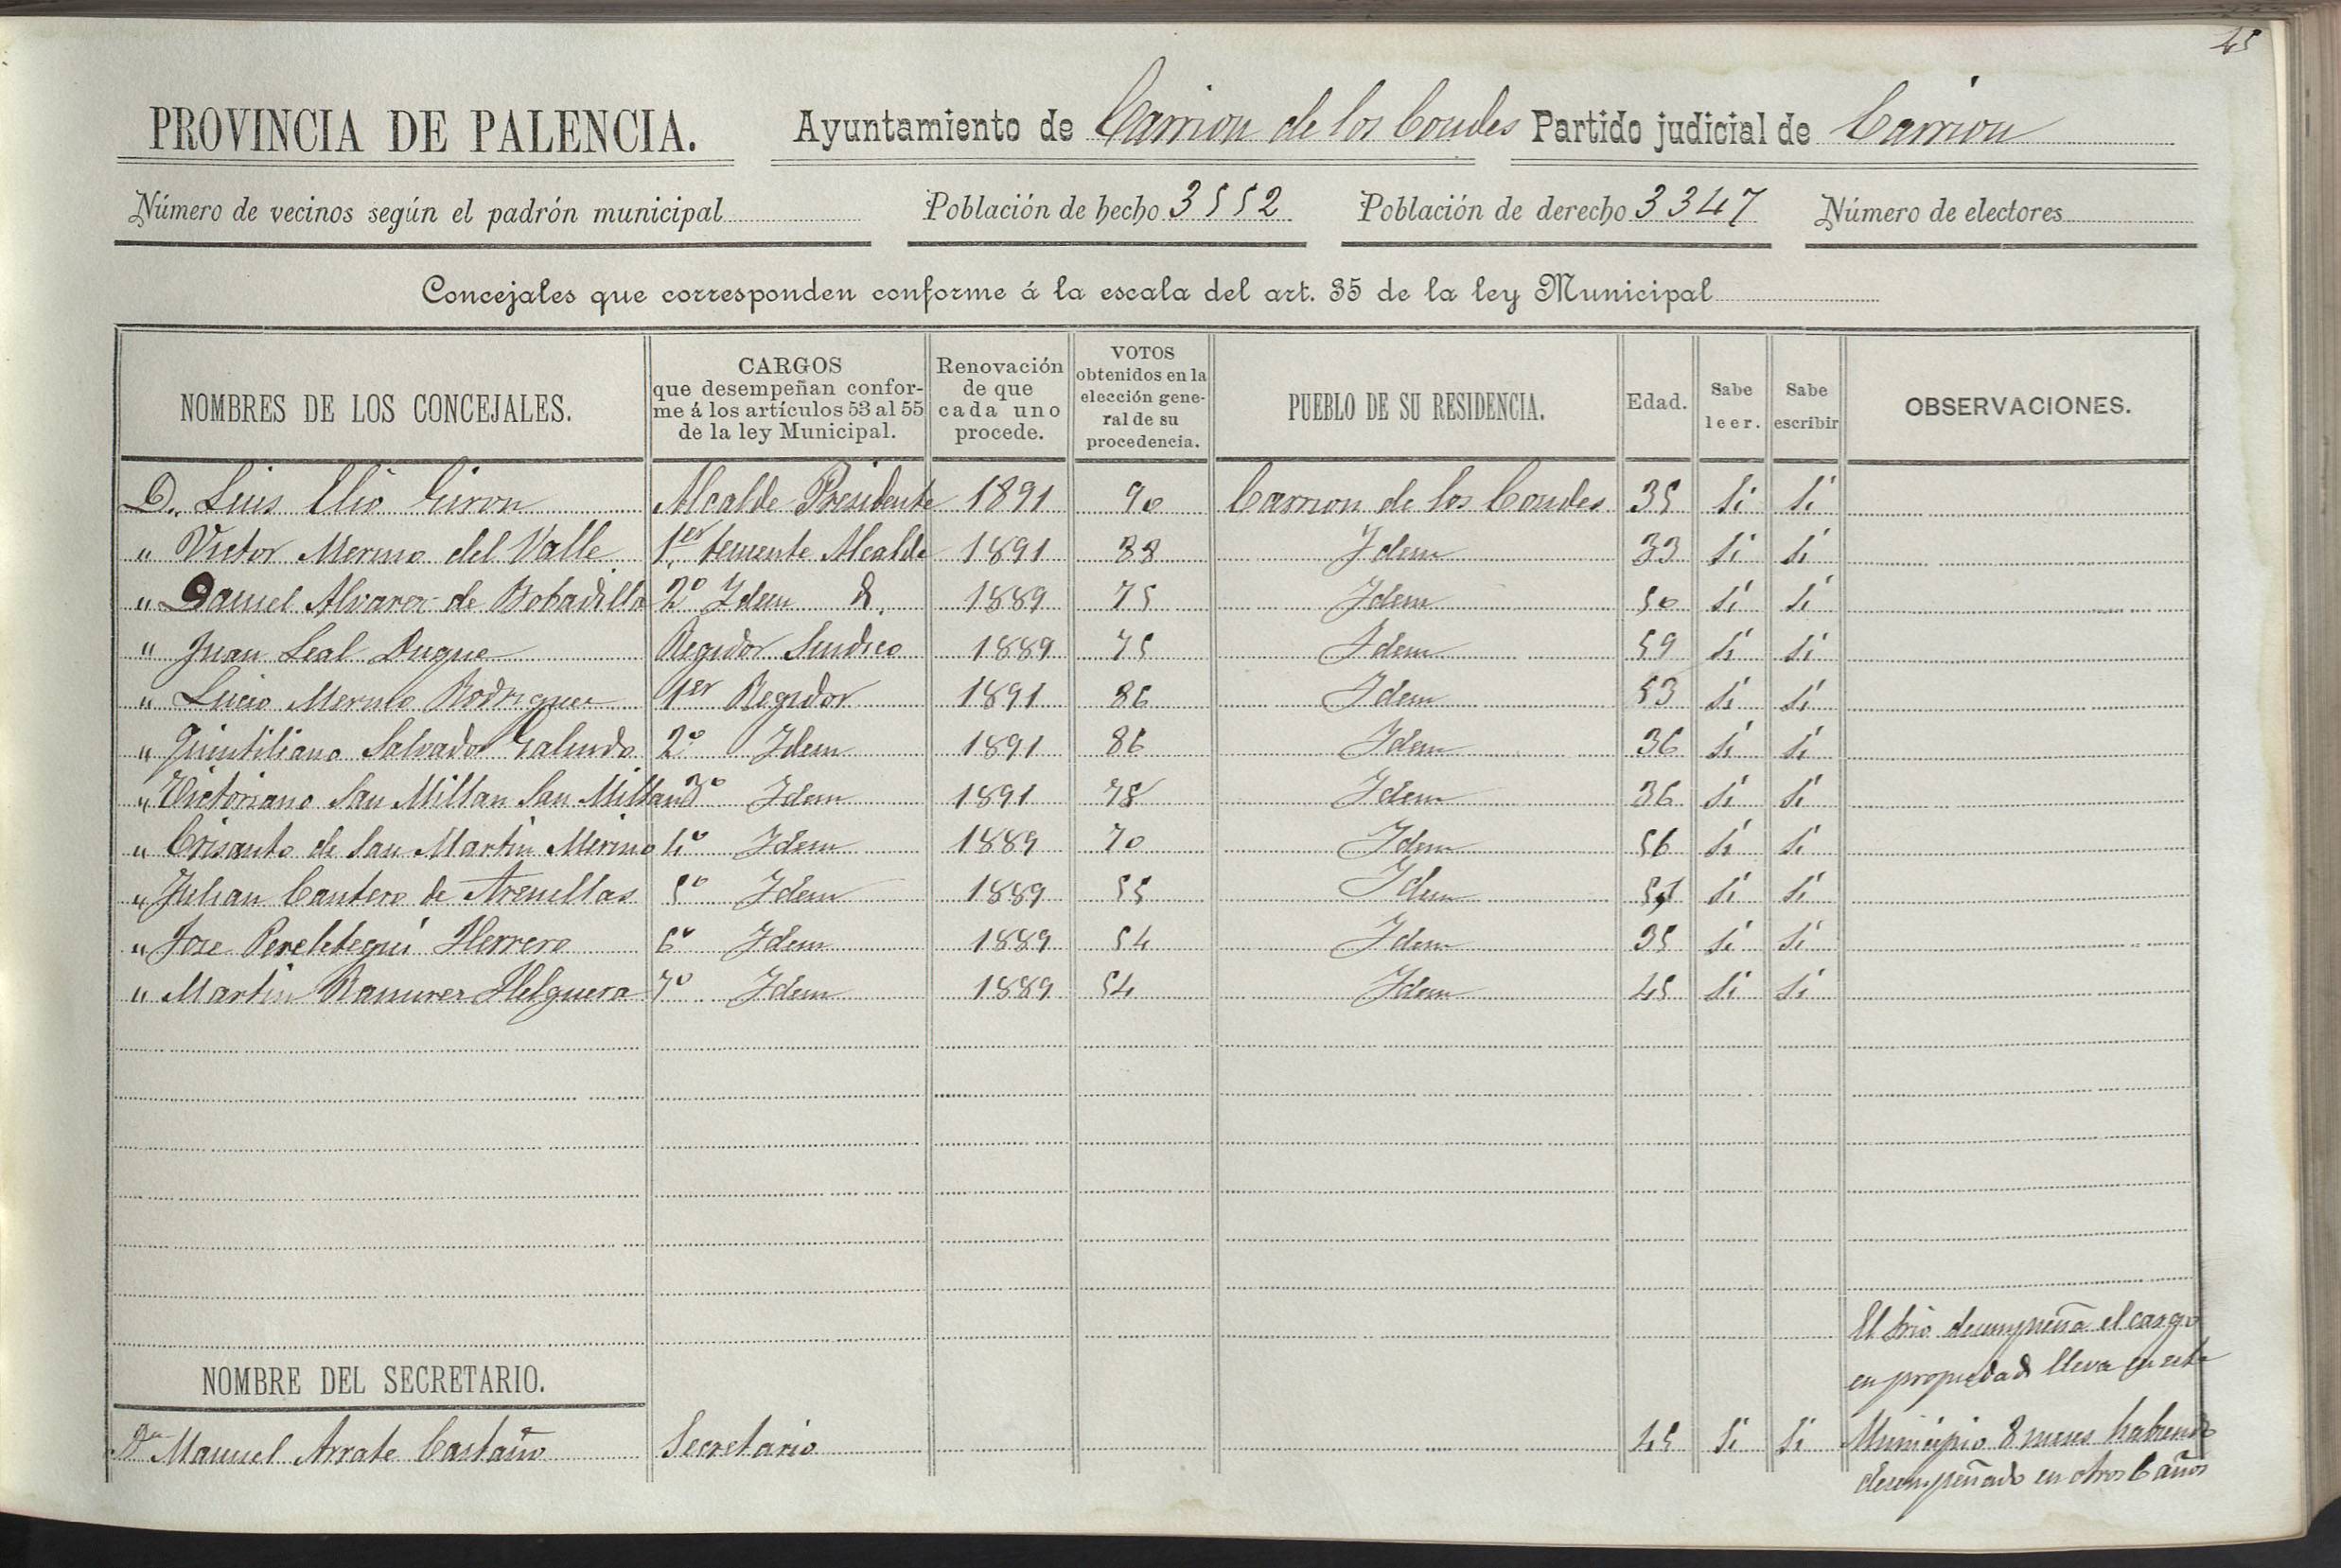 45
PROVINCIA DE PALENCIA. Ayuntamiento de Carrion de los Condes Partido judicial de Carrion
Número de vecinos según el padrón municipal Población de hecho 3552 Población de derecho 3347 Número de electores
Concejales que corresponden conforme á la escala del art. 35 de la ley Municipal
NOMBRES DE LOS CONCEJALES. CARGOS que desempeñan conforme á los artículos 53 al 55 de la ley Municipal. Renovación de que cada uno procede. VOTOS obtenidos en la elección general de su procedencia. PUEBLO DE SU RESIDENCIA. Edad. Sabe leer. Sabe escribir OBSERVACIONES.
D. Luis Giron Alcalde Presidente 1891 90 Carrion de los Condes 35 Si Si
" Victor Merino del Valle 1er teniente Alcalde 1891 88 Idem 33 Si Si
" Daniel Alvarez de Bobadilla 2º Idem 1889 75 Idem 50 Si Si
" Juan Leal Duque Regidor Sindico 1889 75 Idem 59 Si Si
" Lucio Merino Rodriguez 1er Regidor 1891 86 Idem 53 Si Si
" Quintiliano Salvador Galindo 2º Idem 1891 86 Idem 36 Si Si
" Victoriano San Millan San Millan 3º Idem 1891 78 Idem 36 Si Si
" Crisanto de San Martin Merino 4º Idem 1889 70 Idem 56 Si Si
" Julian Cantero de Arenillas 5º Idem 1889 55 Idem Si Si
" Jose Pereletegui Herrero 6º Idem 1889 54 Idem 35 Si Si
" Martin Ramirez Helguera 7º Idem 1889 54 Idem 45 Si Si
El Srio desempeña el cargo
en propiedad lleva en este
NOMBRE DEL SECRETARIO.
Dn Manuel Arrate Castaño Secretario 45 Si Si Municipio 8 meses habiendo
desempeñado en otros 6 años